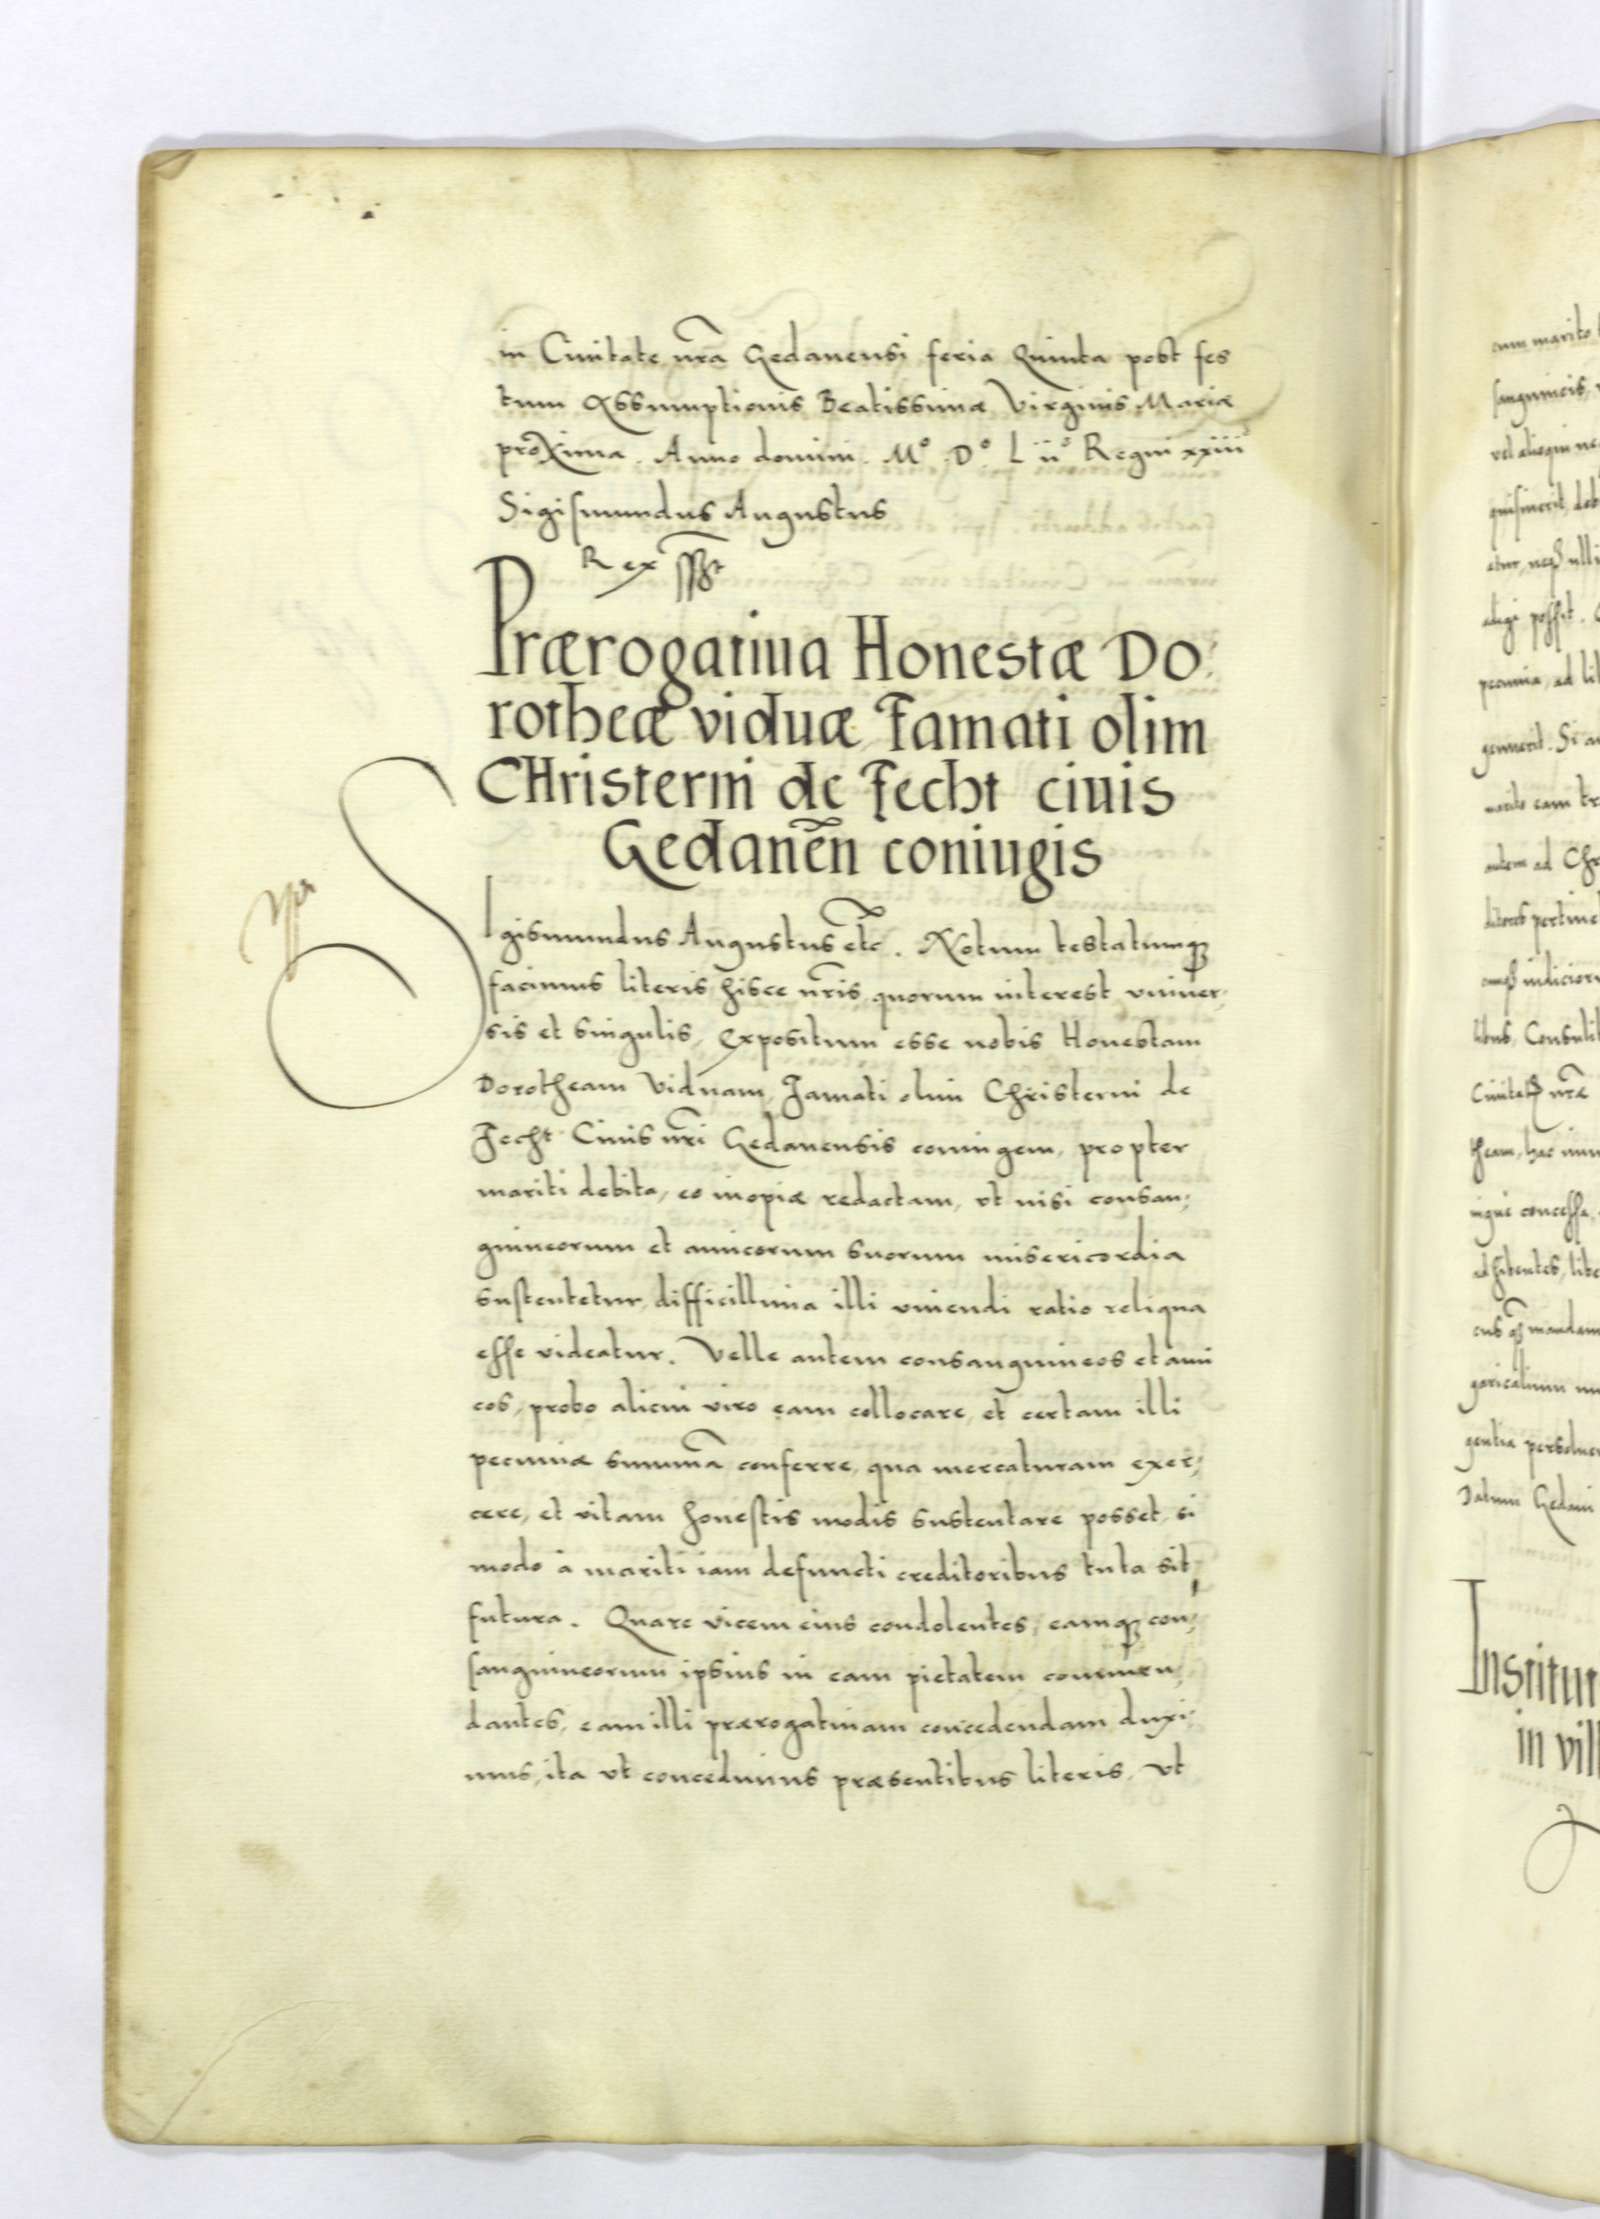 in Ciuitate nr̃a Gedanensi feria Quinta post fes
tum Assumptionis Beatissimæ Virginis Mariæ
proxima. Anno domini. Mº. Dº. L iiº Regni xxiiiº
Sigismundus Augustus
Rex sst
Prærogatiua Honestæ Do,
rotheæ viduæ, Famati olim
CHristerni de Fecht ciuis
Gedanen̄ coniugis
SIgismundus Augustus etc̃. Notum testatumqꝫ
facimus literis hisce nr̃is, quorum interest vniuer,
sis et singulis, Expositum esse nobis Honestam
Dorotheam Viduam, Famati olim Christerni de
Fecht Ciuis nr̃i Gedanensis coniugem, propter
mariti debita, eo inopiæ redactam, vt nisi consan,
guineorum et amicorum suorum misericordia
sustentetur, difficillima illi viuendi ratio reliqua
esse videatur. Velle autem consanguineos et ami
cos, probo alicui viro eam collocare, et certam illi
pecuniæ summã conferre, qua mercaturam exer,
cere, et vitam honestis modis sustentare posset, si
modo à mariti iam defuncti creditoribus tuta sit,
futura. Quare vicem eius condolentes, eamqꝫ con,
sanguineorum ipsius in eam pietatem commen,
dantes, eam illi prærogatiuam concedendam duxi,
mus, ita vt concedimus præsentibus literis, vt
cum marito
sanguineis,
aligi possit.
pecunia, ad
autem ad
Datum Gedani
in vill